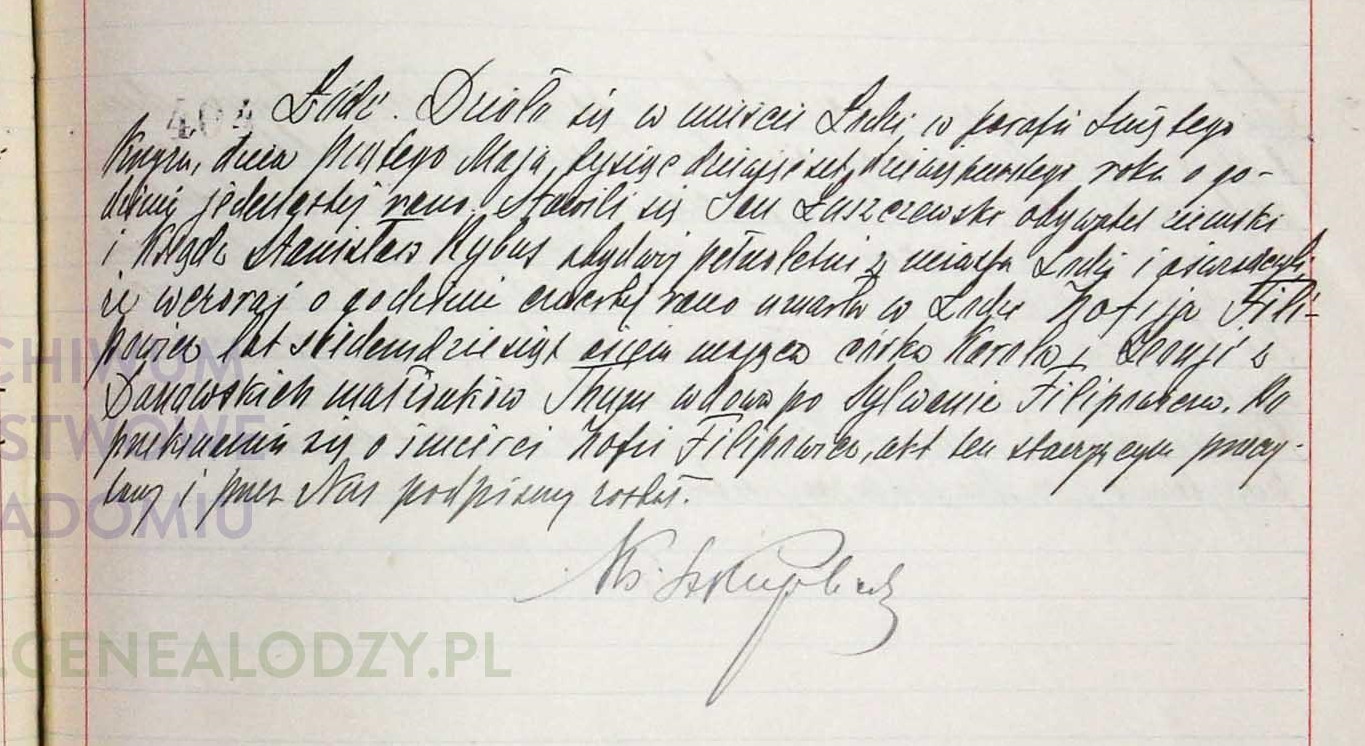 404 Łódź. Działo się w mieście Łodzi w parafii Świętego
Krzyża, dnia piątego Maja, tysiąc dziewięćset dziewiętnastego roku o go-
dzinie jedenastej rano. Stawili się Jan Łuszczewski obywatel ziemski
i Ksiądz Stanisław Rybus obydwaj pełnoletni z miasta Łodzi i oświadczyli,
że wczoraj o godzinie rano umarła w Łodzi Zofija Fili-
powicz lat siedemdziesiąt osiem mająca córka Karola i z
Danowskich małżonków Thugu wdowa po Sylwanie Filipowiczu. Po
przekonaniu się o śmierci Zofii Filipowicz, akt ten stawającym przeczy-
tany i przez Nas podpisany został.
Ks.
CHIWUM
STWOWE
ADOMIU
.GENEALODZY.PL